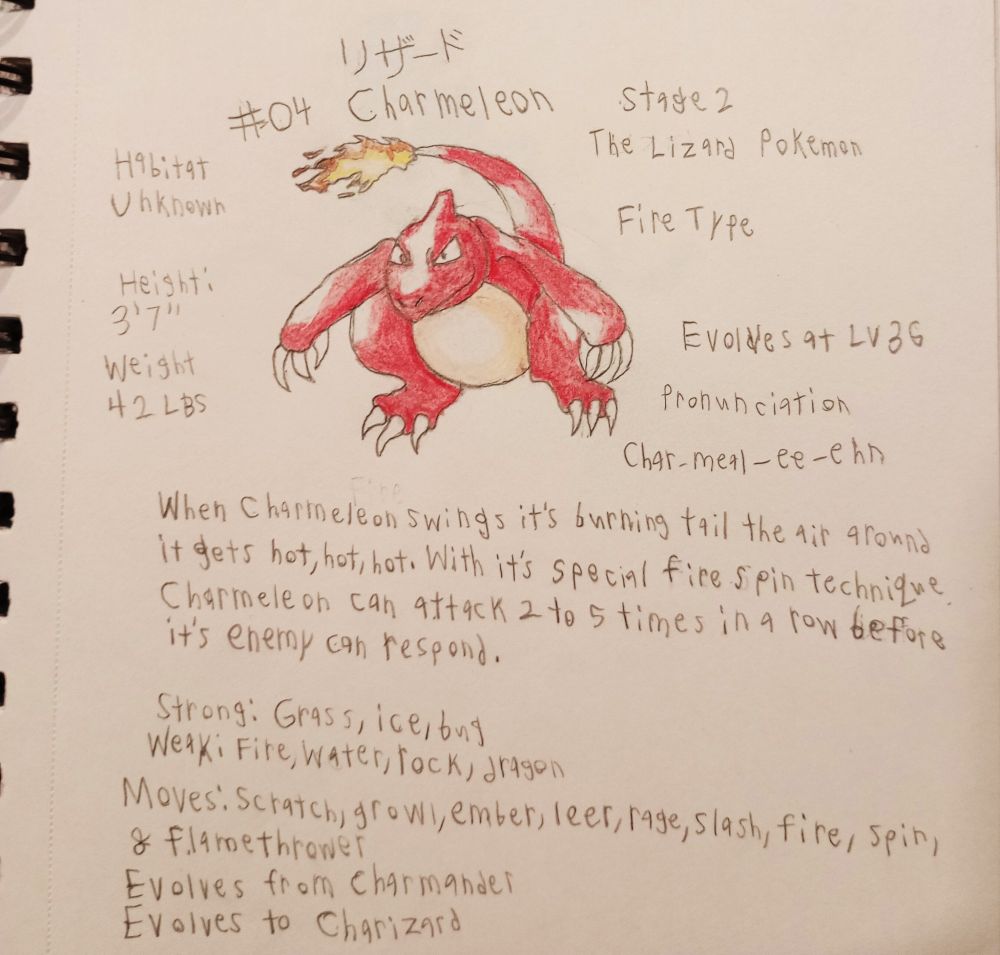 リザード
#04 Charmeleon
Stage 2
The Lizard Pokemon
Habitat
Unknown
Fire Type
Height:
3'7"
Weight
42 LBS
Evolves at LV36
Pronunciation
Char-meal-ee-ehn
Fire
When Charmeleon swings it's burning tail the air around
it gets hot, hot, hot. With it's special fire spin technique
Charmeleon can attack 2 to 5 times in a row before
it's enemy can respond.
Strong: Grass, ice, bug
Weak: Fire, Water, rock, dragon
Moves: Scratch, growl, ember, leer, rage, slash, fire, spin,
& flamethrower
Evolves from Charmander
Evolves to Charizard